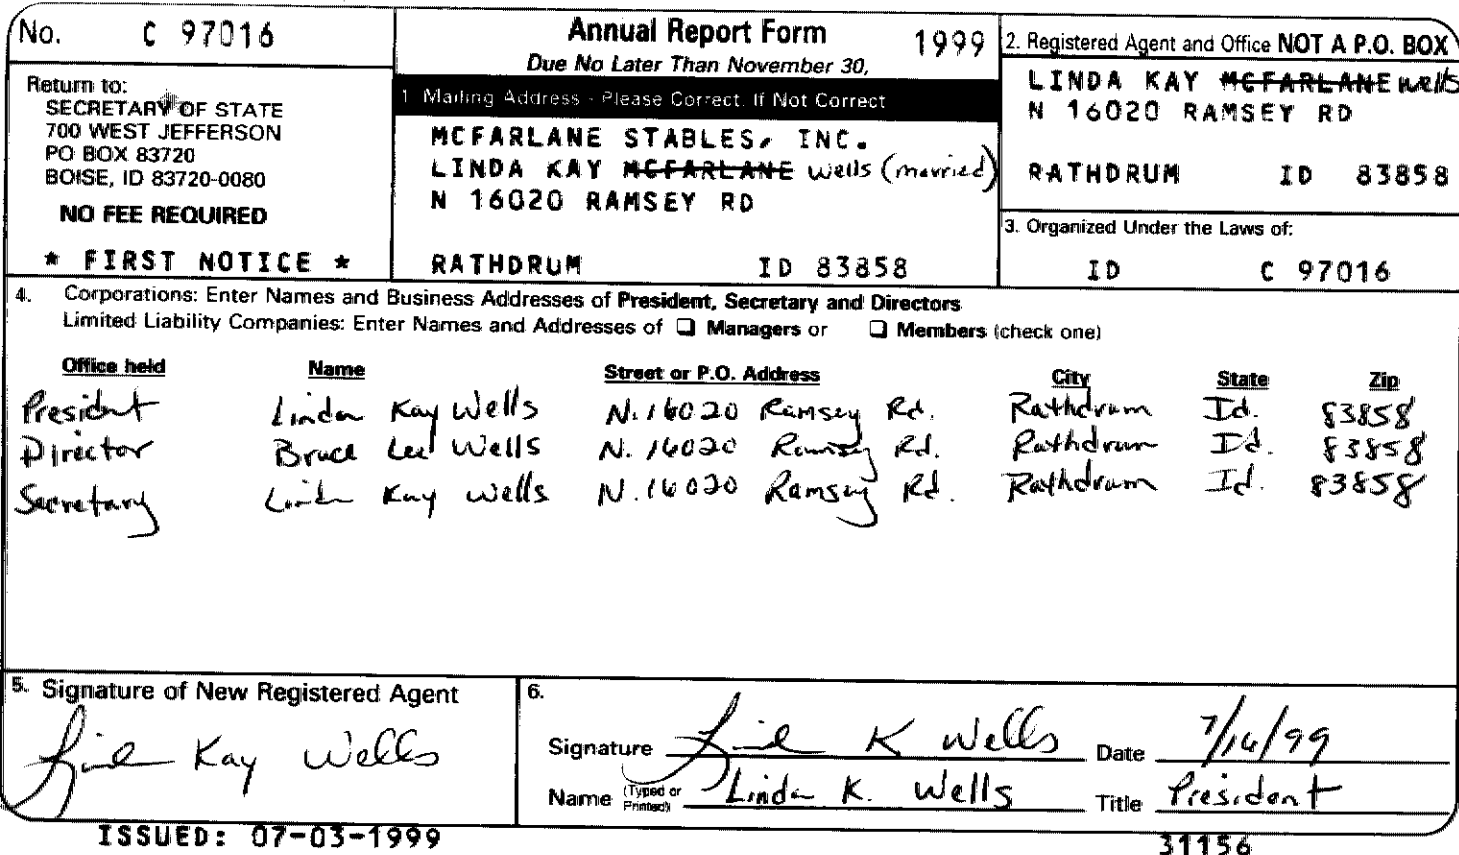 No. C 97016
Return to:
SECRETARY OF STATE
700 WEST JEFFERSON
PO BOX 83720
BOISE, ID 83720-0080
NO FEE REQUIRED
* FIRST NOTICE *
Annual Report Form 1999
Due No Later Than November 30,
1. Mailing Address - Please Correct, If Not Correct
MCFARLANE STABLES, INC.
LINDA KAY MCFARLANE Wells (married)
N 16020 RAMSEY RD
RATHDRUM ID 83858
2. Registered Agent and Office NOT A P.O. BOX
LINDA KAY MCFARLANE Wells
N 16020 RAMSEY RD
RATHDRUM ID 83858
3. Organized Under the Laws of:
ID C 97016
4. Corporations: Enter Names and Business Addresses of President, Secretary and Directors
Limited Liability Companies: Enter Names and Addresses of ❑ Managers or ❑ Members (check one)
Office held Name Street or P.O. Address City State Zip
President Linda Kay Wells N. 16020 Ramsey Rd. Rathdrum Id. 83858
Director Bruce Lee Wells N. 16020 Ramsey Rd. Rathdrum Id. 83858
Secretary Linda Kay Wells N. 16020 Ramsey Rd. Rathdrum Id. 83858
5. Signature of New Registered Agent
Linda Kay Wells
6.
Signature Linda K Wells Date 7/16/99
Name (Typed or Printed) Linda K. Wells Title President
ISSUED: 07-03-1999
31156